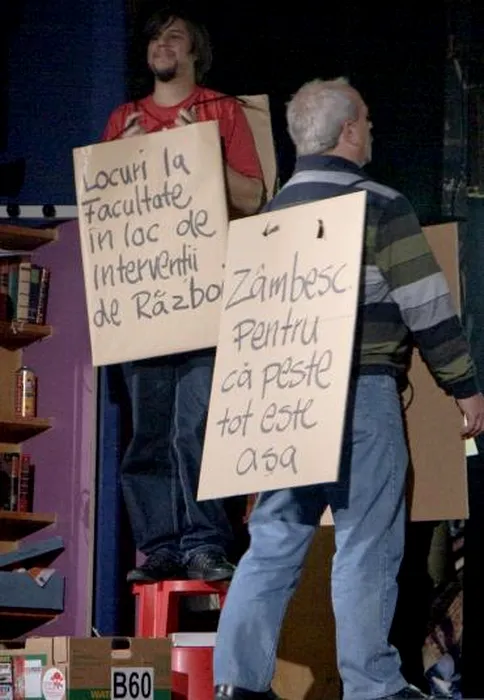 Locuri la
Facultate
în loc de
Intervenții
de Războ
Zâmbesc
Pentru
că peste
tot este
așa
B60